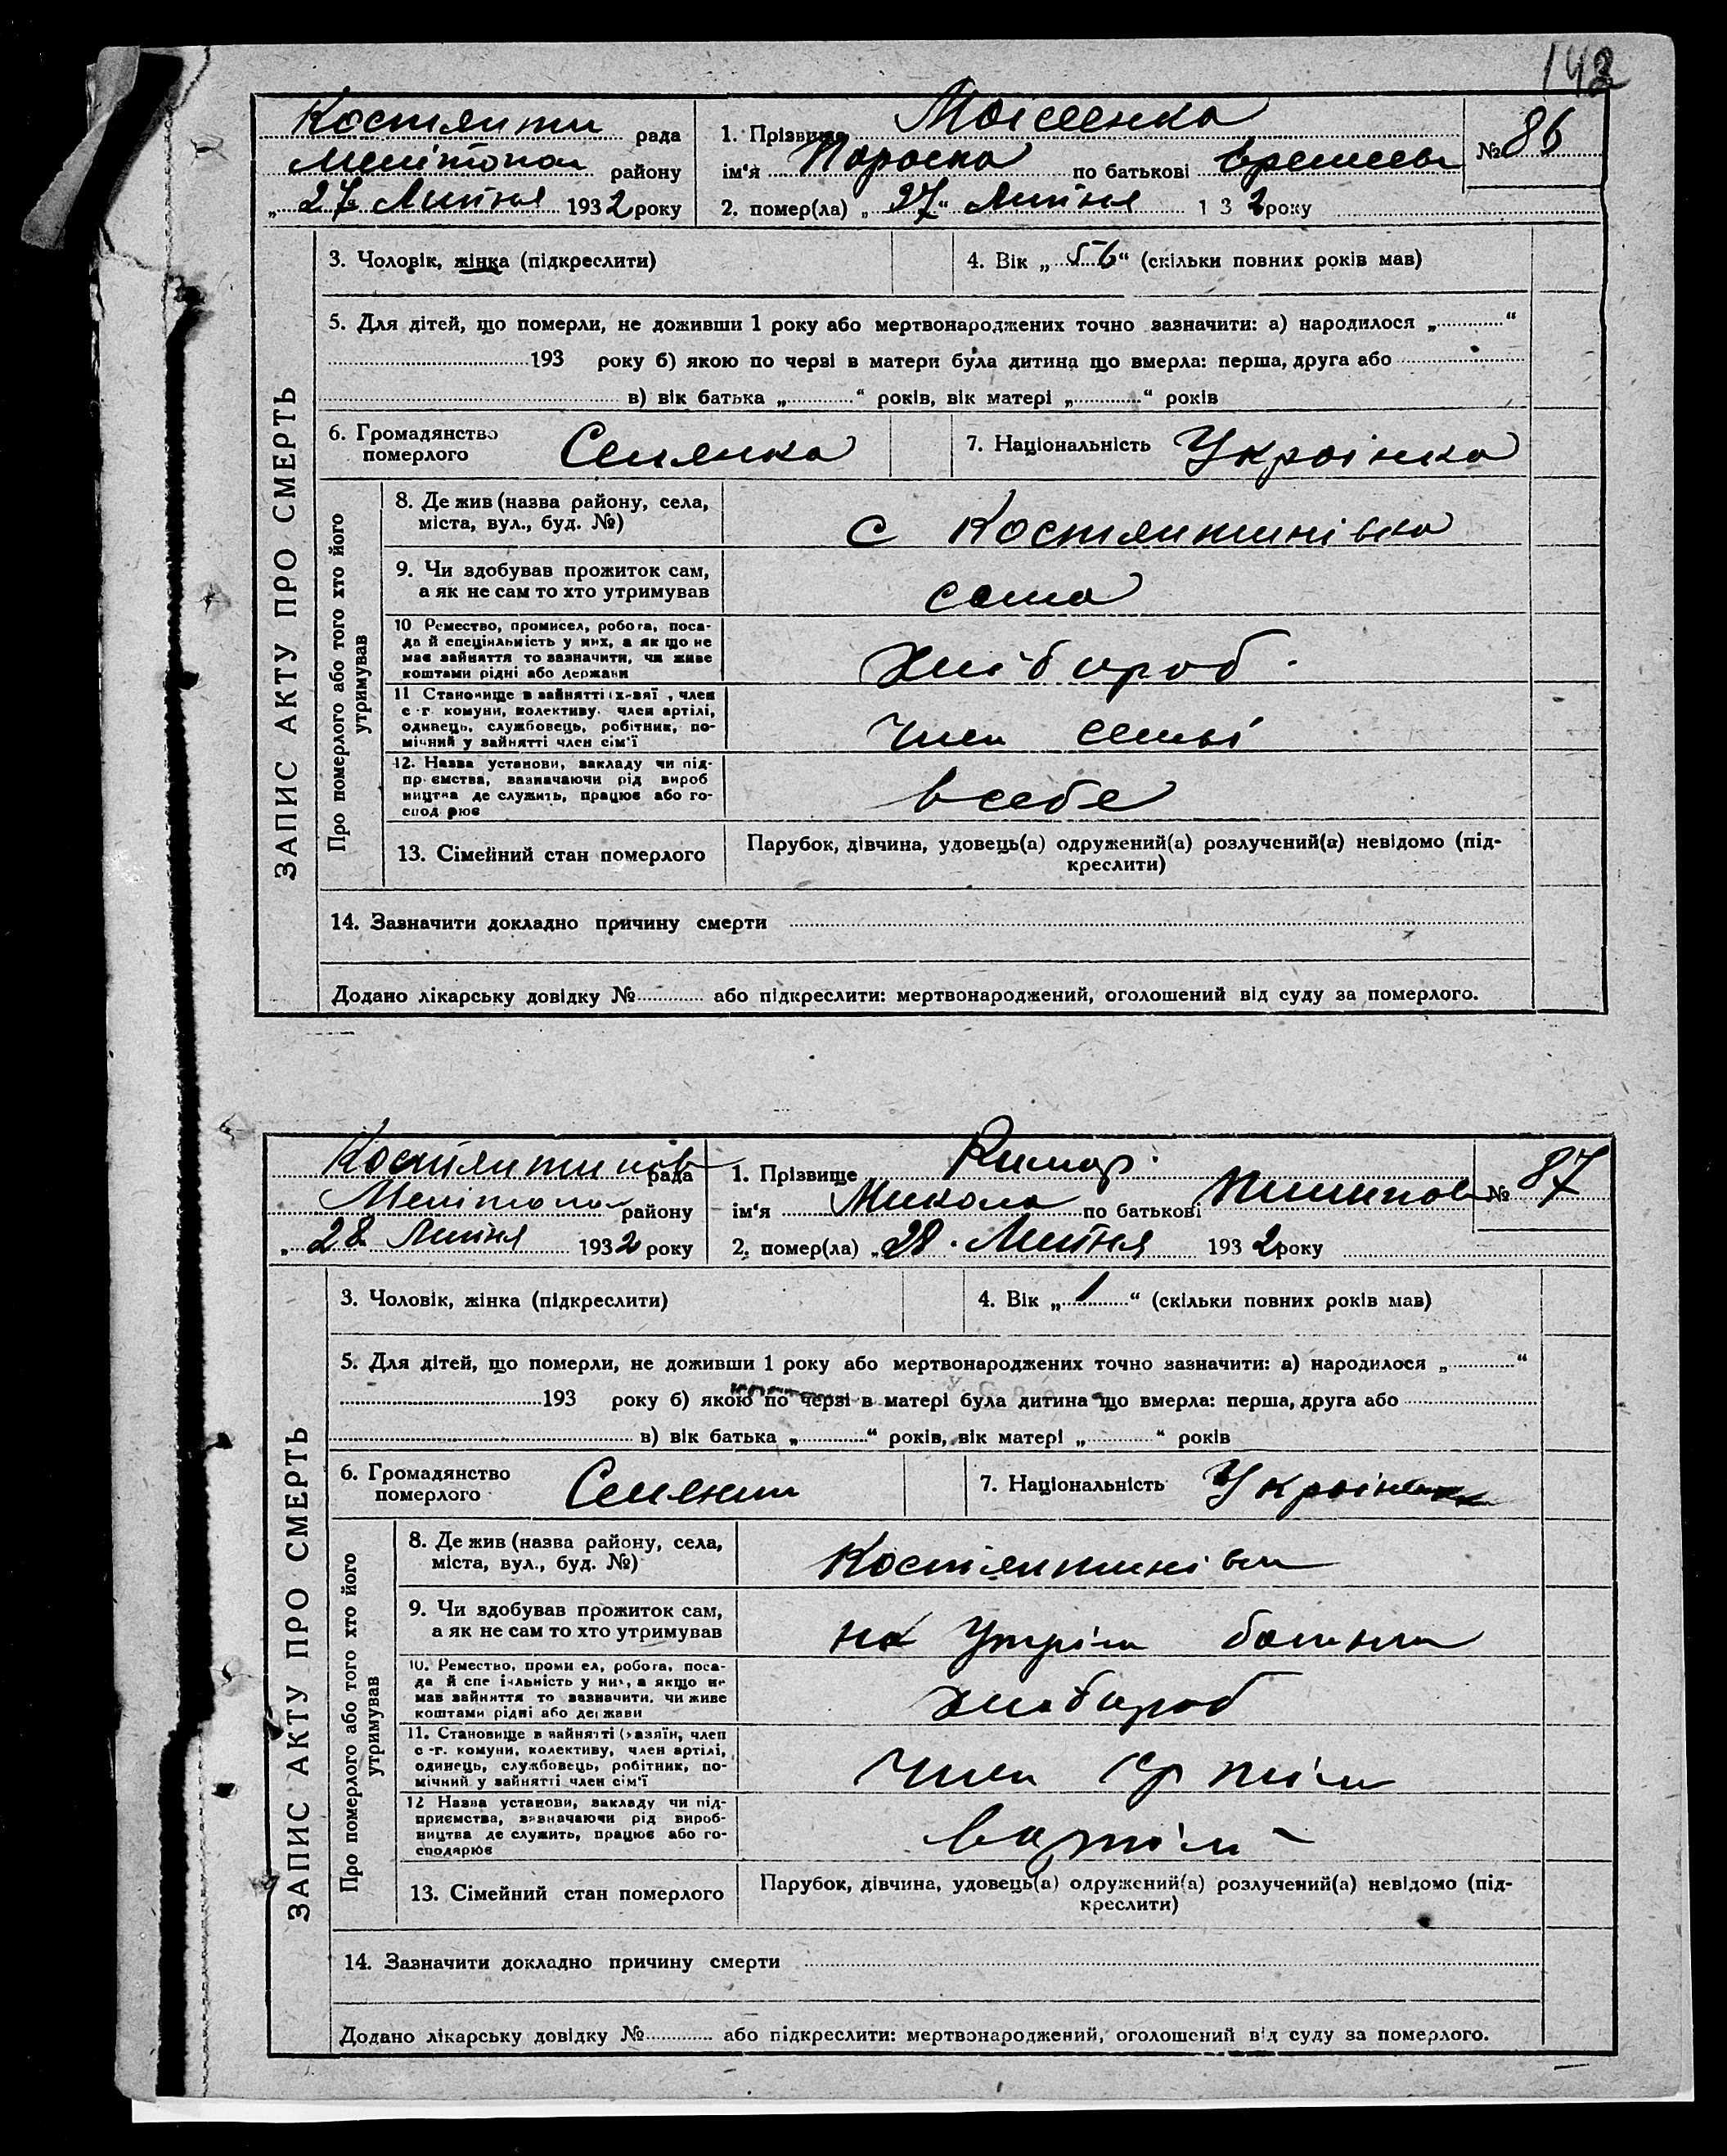 142
Костянти рада
Меліпопол району
„ 27 Липня 1932 року
1. Прізвище Моісеенка
ім‘я Параска по батькові
№ 86
2. помер(ла) „ 27 “ Липня 1 3 2 року
ЗАПИС АКТУ ПРО СМЕРТЬ
3. Чоловік, жінка (підкреслити)
4. Вік „ 56 “ (скільки повних років мав)
5. Для дітей, що померли, не доживши 1 року або мертвонароджених точно зазначити: а) народилося „ “
193 року б) якою по черзі в матери була дитина що вмерла: перша, друга або
в) вік батька „ “ років, вік матері „ “ років
6. Громадянство
померлого Селянка
7. Національність Украінка
Про померлого або того хто його
утримував
8. Де жив (назва району, села,
міста, вул., буд. №)
с Костянтинівка
9. Чи здобував прожиток сам,
а як не сам то хто утримував
сама
10 Ремество, промисел, робота, поса-
да й спеціяльність у них, а як що не
має зайняття то зазначити, чи живе
коштами рідні або держави
хлібороб.
11 Становище в зайнятті , член
с -г. комуни, колективу, член артілі,
одинець, службовець, робітник, по-
мічний у зайнятті член сім‘ї
член семьі
12. Назва установи, закладу чи під-
пр ємства, зазначаючи рід вироб
ництва де служить, працює або го-
спод рює
всебе
13. Сімейний стан померлого
Парубок, дівчина, удовець(а) одружений(а) розлучений(а) невідомо (під-
креслити)
14. Зазначити докладно причину смерти
Додано лікарську довідку № або підкреслити: мертвонароджений, оголошений від суду за померлого.
Костянтинов рада
Меліпопол району
„ 28 Липня 1932 року
1. Прізвище Римар.
ім‘я Микола по батькові
№ 87
2. помер(ла) „ 28. Липня 1932 року
ЗАПИС АКТУ ПРО СМЕРТЬ
3. Чоловік, жінка (підкреслити)
4. Вік „ 1 “ (скільки повних років мав)
5. Для дітей, що померли, не доживши 1 року або мертвонароджених точно зазначити: а) народилося „ “
193 року б) якою по черзі в матері була дитина що вмерла: перша, друга або
в) вік батька „ “ років, вік матері „ “ років
6. Громадянство
померлого Селянин
7. Національність
Про померлого або того хто його
утримував
8. Де жив (назва району, села,
міста, вул., буд. №)
Костянтинівка
9. Чи здобував прожиток сам,
а як не сам то хто утримував
на утрім батька
10. Ремество, проми ел, робота, поса-
да й спе іяльність у них, а якщо не
мав зайняття то зазначити, чи живе
коштами рідні або держави
хлібороб
11. Становище в зайнятті (хазяїн, член
с -г. комуни, колективу, член артілі,
одинець, службовець, робітник, по-
мічний у зайнятті член сім‘ї
член артіли
12 Назва установи, закладу чи під-
приємства, зазначаючи рід вироб-
ництва де служить, працює або го-
сподарює
вартілі
13. Сімейний стан померлого
Парубок, дівчина, удовець(а) одружений(а) розлучений(а) невідомо (під-
креслити)
14. Зазначити докладно причину смерти
Додано лікарську довідку № або підкреслити: мертвонароджений, оголошений від суду за померлого.